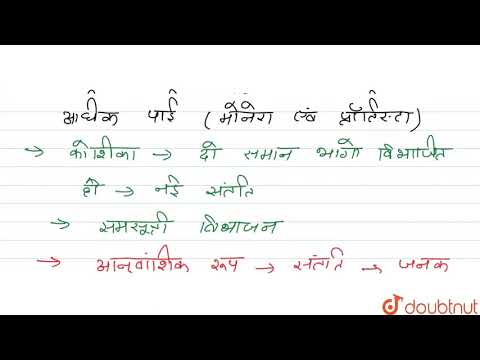 आधिक पाई (मोनेरा एवं प्रॉटिस्टा)
→ कोशिका → दो समान भागो विभाजित
हो → नई संतति
→ समसूत्री विभाजन
→ आनुवांशिक रूप → संतति → जनक
doubtnut